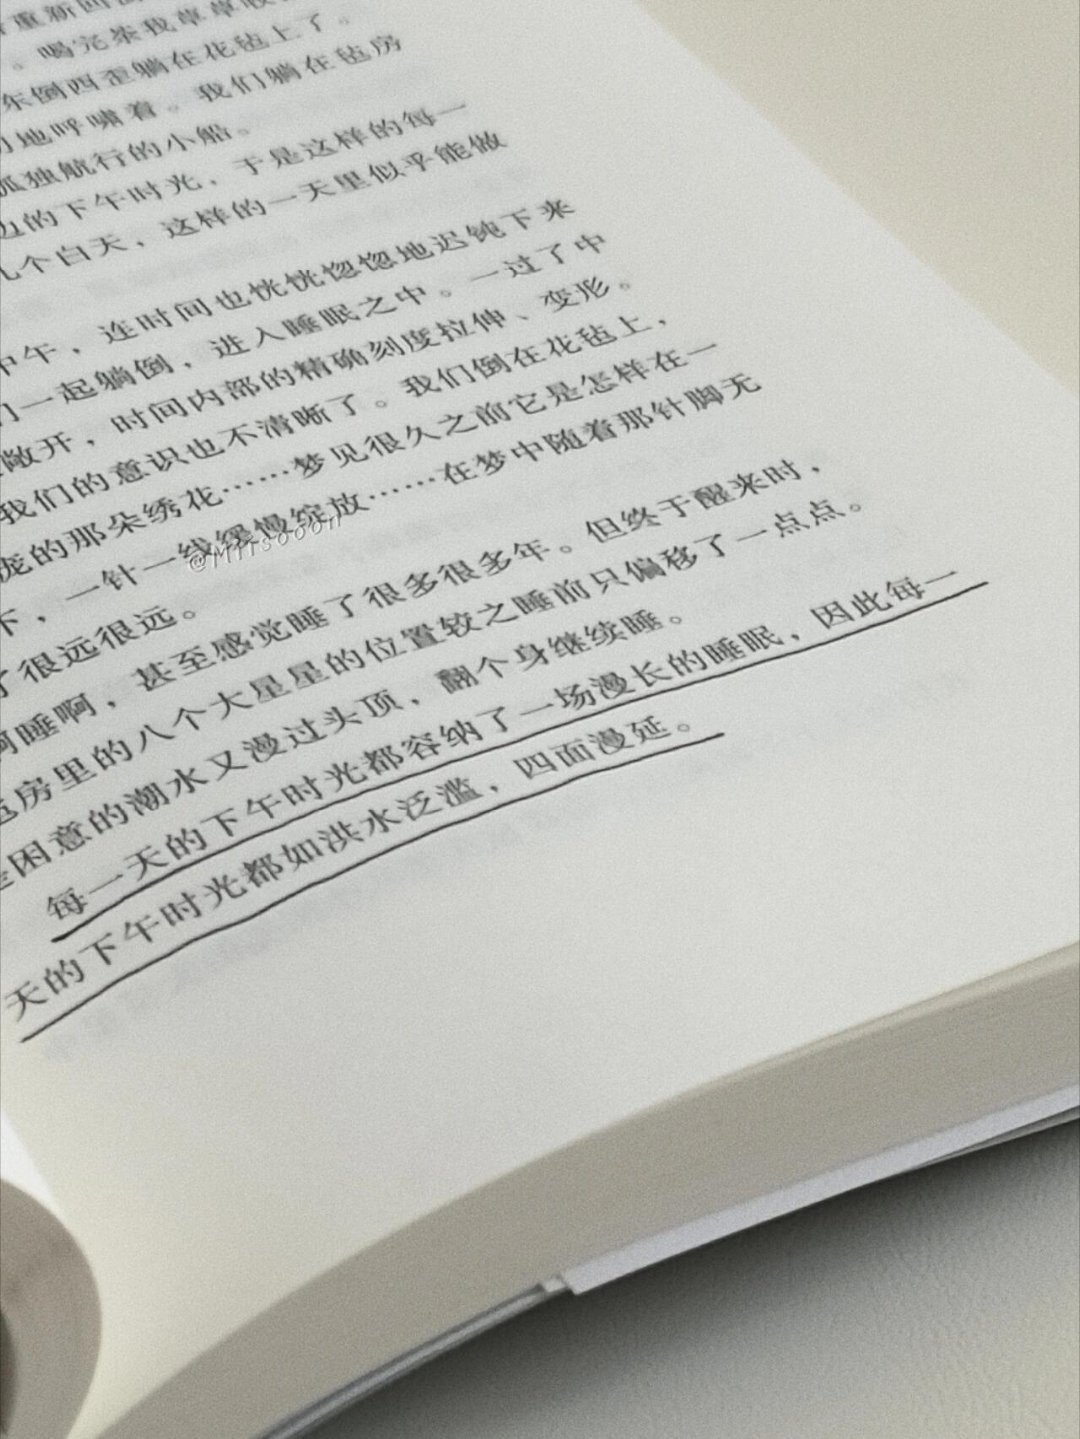 重新回
。喝完茶我草草收
东倒西歪躺在花毡上了。
地呼啸着。我们躺在毡房
孤独航行的小船。
边的下午时光，于是这样的每一
几个白天，这样的一天里似乎能做
中午，连时间也恍恍惚惚地迟钝下来
们一起躺倒，进入睡眠之中。一过了中
敞开，时间内部的精确刻度拉伸、变形。
我们的意识也不清晰了。我们倒在花毡上，
庞的那朵绣花……梦见很久之前它是怎样在一
下，一针一线缓慢绽放……在梦中随着那针脚无
了很远很远。
@Miisooon
啊睡啊，甚至感觉睡了很多很多年。但终于醒来时，
毡房里的八个大星星的位置较之睡前只偏移了一点点。
是困意的潮水又漫过头顶，翻个身继续睡。
每一天的下午时光都容纳了一场漫长的睡眠，因此每一
天的下午时光都如洪水泛滥，四面漫延。